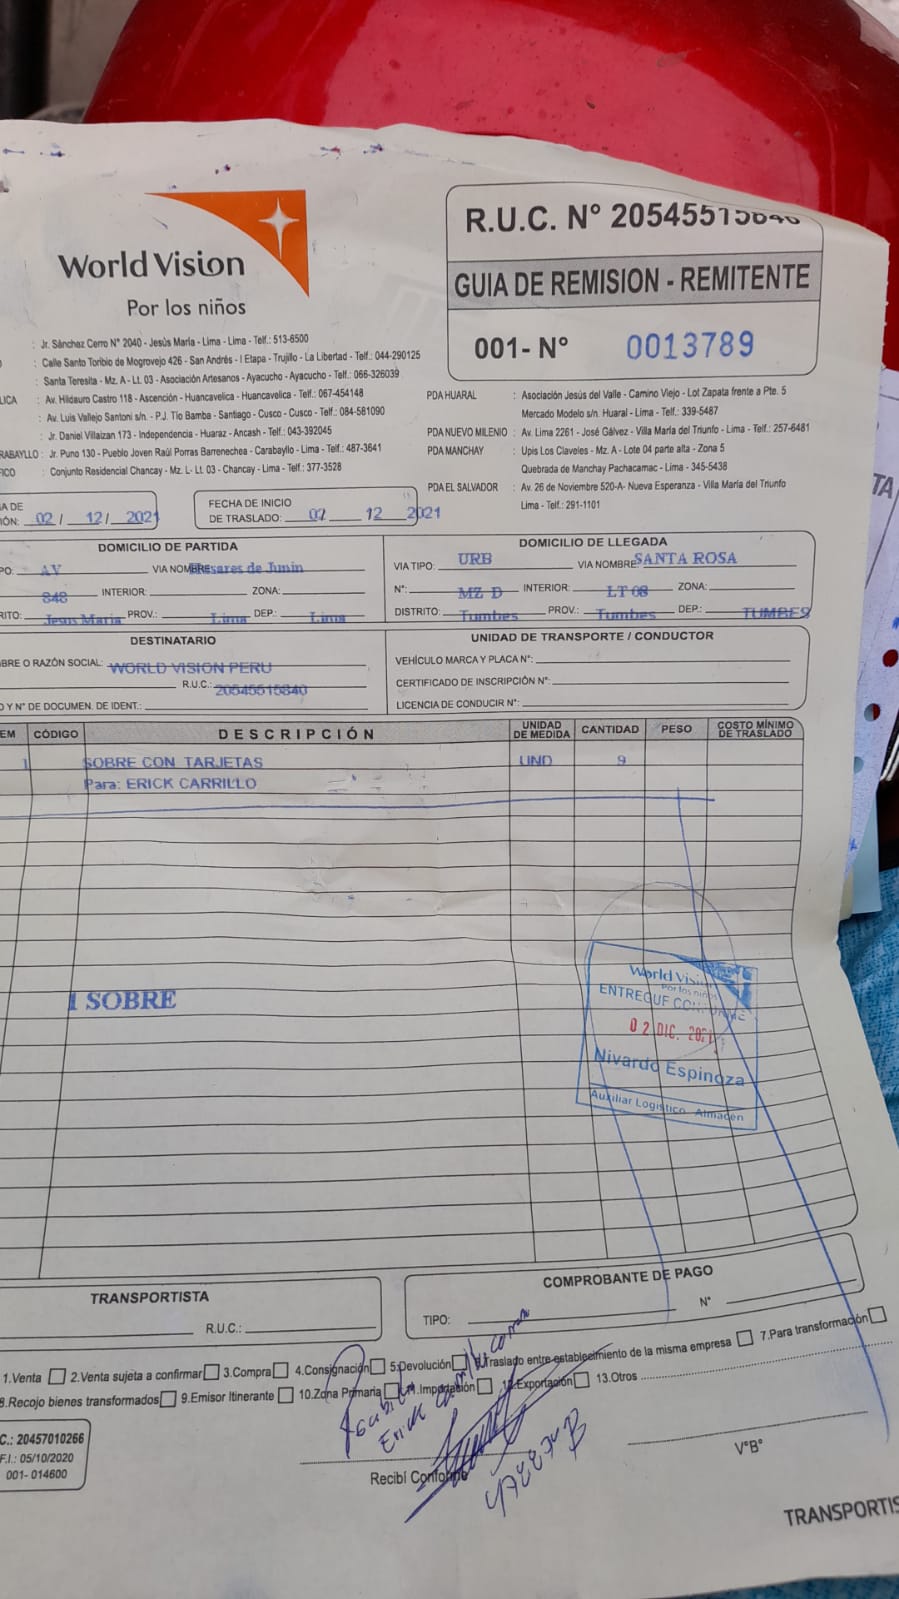 World Vision
Por los niños
R.U.C. N° 20545515840
GUIA DE REMISION - REMITENTE
001- N° 0013789
: Jr. Sánchez Cerro N° 2040 - Jesús María - Lima - Lima - Telf.: 513-6500
: Calle Santo Toribio de Mogrovejo 426 - San Andrés - I Etapa - Trujillo - La Libertad - Telf.: 044-290125
: Santa Teresita - Mz. A - Lt. 03 - Asociación Artesanos - Ayacucho - Ayacucho - Telf.: 066-326039
LICA : Av. Hildauro Castro 118 - Ascención - Huancavelica - Huancavelica - Telf.: 067-454148
: Av. Luis Vallejo Santoni s/n. - P.J. Tio Bamba - Santiago - Cusco - Cusco - Telf.: 084-581090
: Jr. Daniel Villaizan 173 - Independencia - Huaraz - Ancash - Telf.: 043-392045
RABAYLLO : Jr. Puno 130 - Pueblo Joven Raúl Porras Barrenechea - Carabayllo - Lima - Telf.: 487-3641
FICO : Conjunto Residencial Chancay - Mz. L- Lt. 03 - Chancay - Lima - Telf.: 377-3528
PDA HUARAL : Asociación Jesús del Valle - Camino Viejo - Lot Zapata frente a Pte. 5
Mercado Modelo s/n. Huaral - Lima - Telf.: 339-5487
PDA NUEVO MILENIO : Av. Lima 2261 - José Gálvez - Villa María del Triunfo - Lima - Telf.: 257-6481
PDA MANCHAY : Upis Los Claveles - Mz. A - Lote 04 parte alta - Zona 5
Quebrada de Manchay Pachacamac - Lima - 345-5438
PDA EL SALVADOR : Av. 26 de Noviembre 520-A- Nueva Esperanza - Villa María del Triunfo
Lima - Telf.: 291-1101
A DE
IÓN: 02/ 12/ 2021
FECHA DE INICIO
DE TRASLADO: 02 12 2021
DOMICILIO DE PARTIDA
PO: AV VIA NOMBRE Husares de Junin
848 INTERIOR: ZONA:
RITO: Jesus Maria PROV.: Lima DEP.: Lima
DOMICILIO DE LLEGADA
VIA TIPO: URB VIA NOMBRE: SANTA ROSA
N°: MZ D INTERIOR: LT 08 ZONA:
DISTRITO: Tumbes PROV.: Tumbes DEP.: TUMBES
DESTINATARIO
BRE O RAZÓN SOCIAL: WORLD VISION PERU
R.U.C.: 20545515840
O Y N° DE DOCUMEN. DE IDENT.:
UNIDAD DE TRANSPORTE / CONDUCTOR
VEHÍCULO MARCA Y PLACA N°:
CERTIFICADO DE INSCRIPCIÓN N°:
LICENCIA DE CONDUCIR N°:
EM CÓDIGO DESCRIPCIÓN UNIDAD DE MEDIDA CANTIDAD PESO COSTO MÍNIMO DE TRASLADO
1 SOBRE CON TARJETAS UND 9
Para: ERICK CARRILLO
World Vision
Por los niños
ENTREGUE CONFORME
1 SOBRE
02 DIC. 2021
Nivardo Espinoza
Auxiliar Logístico Almacén
TRANSPORTISTA
R.U.C.:
COMPROBANTE DE PAGO
TIPO: N°
1.Venta 2.Venta sujeta a confirmar 3.Compra 4.Consignación 5.Devolución 6.Traslado entre establecimiento de la misma empresa 7.Para transformación
8.Recojo bienes transformados 9.Emisor Itinerante 10.Zona Primaria 11.Importación 12.Exportación 13.Otros
Erick Carrillo
C.: 20457010266
F.I.: 05/10/2020
001- 014600
Recibí Conforme
V°B°
TRANSPORTIS
TA